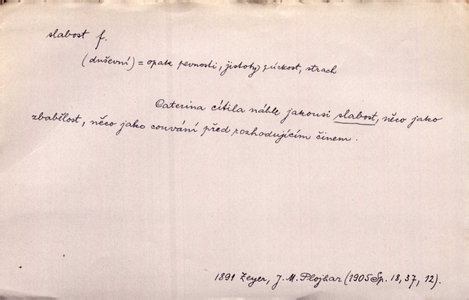 slabost f.
(duševní) = opak pevnosti, jistoty, úzkost, strach
Caterina cítila náhle jakousi slabost, něco jako
zbabělost, něco jako couvání před rozhodujícím činem.
1891 Zeyer, J. M. Plojhar (1905 Sp. 18, 37, 12).